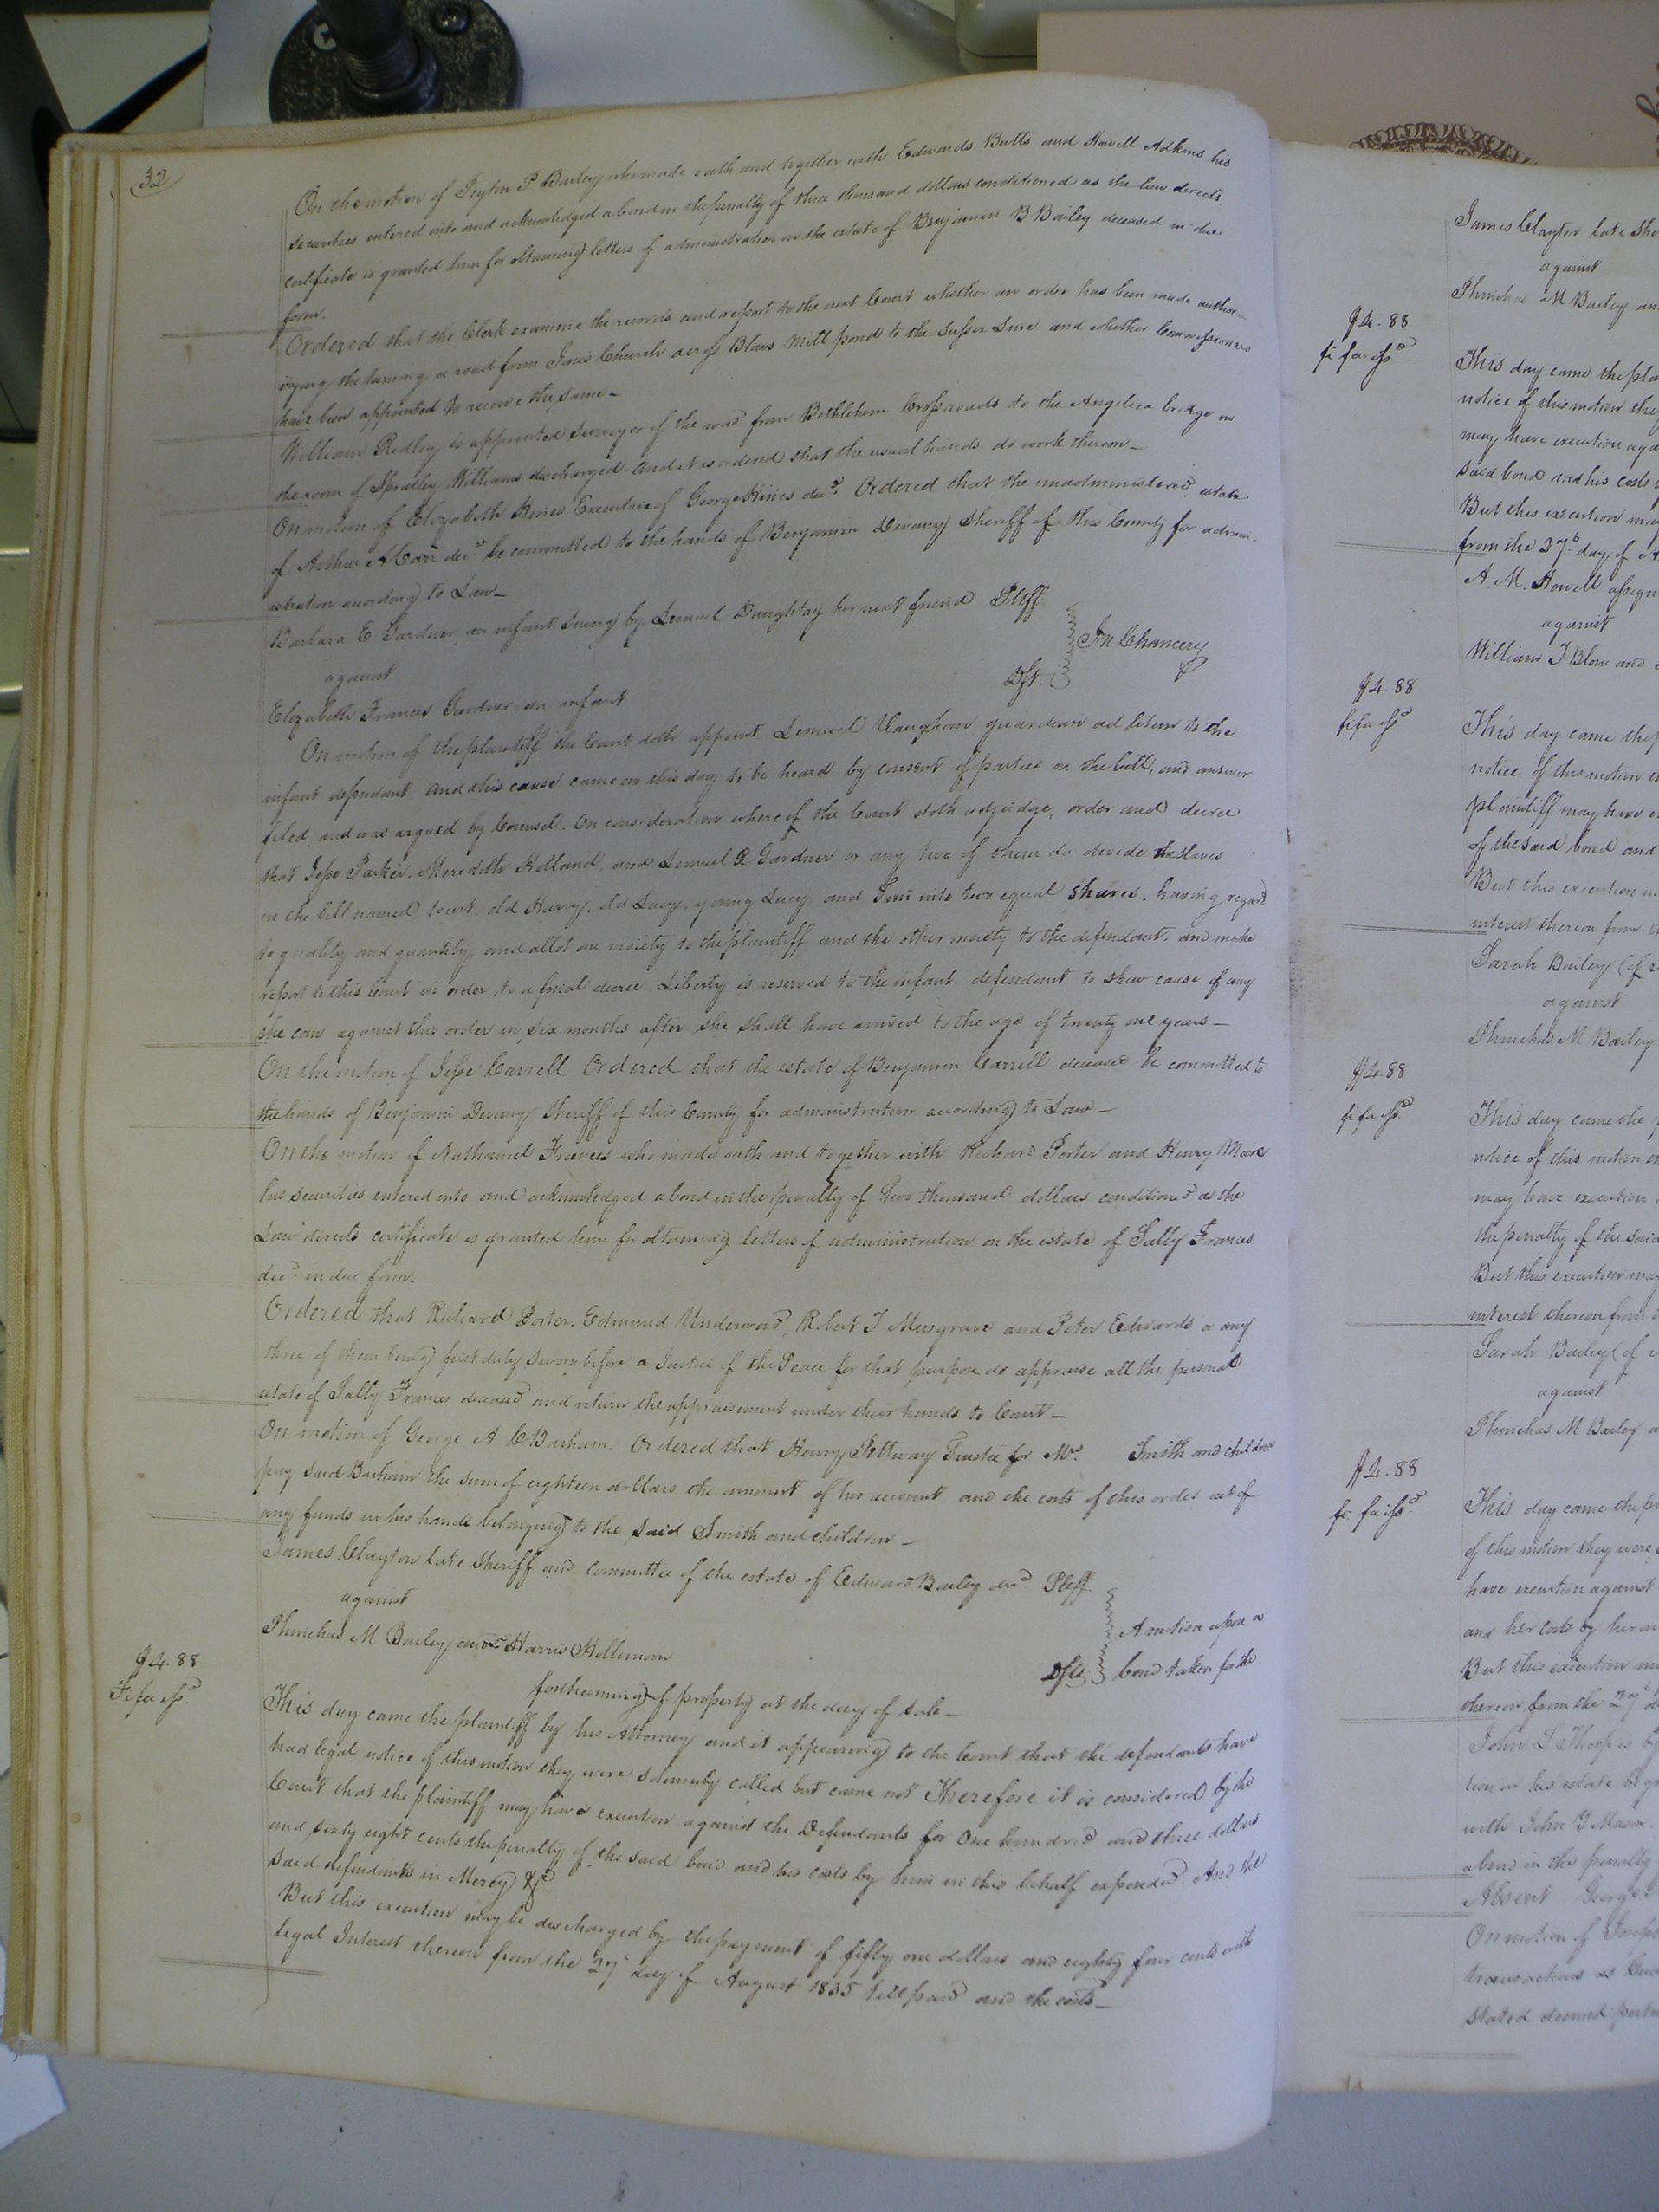 32
On the motion of Peyton P Bailey who made oath and together with Edwards Butts and Howell Adkins his
securities entered into and acknowledged a bond in the penalty of three thousand dollars conditioned as the law directs,
certificate is granted him for obtaining letters of administration on the estate of Benjamin B Bailey deceased in due
form.
Ordered that the Clerk examine the records and report to the next Court whether an order has been made author-
izing the turning a road from Church across Blows Mill pond to the Sussex Line and whether Commissioners
have been appointed to receive the same -
William Ridley is appointed Surveyor of the road from Bethlehem Crossroads to the Angelica bridge in
the room of Spratley Williams discharged. And it is ordered that the usual hands do work thereon -
On motion of Elizabeth Hines Executrix of George Hines decd. Ordered that the unadministered estate
of Arthur A Carr decd. be committed to the hands of Benjamin Devany Sheriff of this County for admin-
istration according to Law -
Barbara E Gardner an infant suing by Lemuel Daughtry her next friend Pltff
against
In Chancery
Elizabeth Frances Gardner an infant Dft.
On motion of the plaintiff the Court doth appoint Lemuel Vaughan guardian ad litem to the
infant defendant. And this cause came on this day to be heard by consent of parties on the bill, and answer
filed, and was argued by Counsel. On consideration whereof the Court doth adjudge, order and decree
that Jesse Parker, Meredith Holland, and Lemuel R Gardner or any two of them do divide the slaves
in the bill named to wit, old Harry, old Lucy, young Lucy, and into two equal shares, having regard
to quality and quantity, and allot one moiety to the plaintiff and the other moiety to the defendant, and make
report to this Court in order to a final decree. Liberty is reserved to the infant defendant to shew cause if any
she can against this order in six months after she shall have arrived to the age of twenty one years -
On the motion of Jesse Carrell Ordered that the estate of Benjamin Carrell deceased be committed to
the hands of Benjamin Devany Sheriff of this County for administration according to Law -
On the motion of Nathaniel Frances who made oath and together with Richard Porter and Henry Moore
his securities entered into and acknowledged a bond in the penalty of two thousand dollars conditioned as the
Law directs certificate is granted him for obtaining letters of administration on the estate of Sally Frances
decd. in due form.
Ordered that Richard Porter, Edmund Underwood, Robert T Musgrave and Peter Edwards or any
three of them being first duly sworn before a Justice of the Peace for that purpose do appraise all the personal
estate of Sally Frances deceased and return the appraisement under their hands to Court -
On motion of George A C Barham. Ordered that Henry Pettway Trustee for Mrs. Smith and children
pay said Barham the sum of eighteen dollars the amount of his account and the costs of this order out of
any funds in his hands belonging to the said Smith and children -
James Clayton late Sheriff and Committee of the estate of Edward Bailey decd Pltff
against
A motion upon a
Phinehas M Bailey and Harris Holleman Dfts.
bond taken for the
forthcoming of property at the day of sale -
$4.88
Fi fa issd.
This day came the plaintiff by his Attorney and it appearing to the Court that the defendants have
had legal notice of this motion they were solemnly called but came not Therefore it is considered by the
Court that the plaintiff may have execution against the Defendants for One hundred and three dollars
and sixty eight cents the penalty of the said bond and his costs by him in this behalf expended. And the
said defendants in Mercy &c.
But this execution may be discharged by the payment of fifty one dollars and eighty four cents with
legal Interest thereon from the 27th day of August 1835 till paid and the costs -
James Clayton late She
against
Phinehas M Bailey an
$4.88
fi fa issd
This day came the pla
notice of this motion they
may have execution aga
said bond and his costs
But this execution may
from the 27th day of A
A. M. Howell assign
against
William J Blow and
$4.88
fi fa issd
This day came the p
notice of this motion
plaintiff may have
of the said bond and
But this execution m
interest thereon from
Sarah Bailey (of
against
Phinehas M Bailey
$4.88
fi fa issd.
This day came the p
notice of this motion th
may have execution
the penalty of the said
But this execution may
interest thereon from
Sarah Bailey (of
against
Phinehas M Bailey a
$4.88
fi fa issd.
This day came the pl
of this motion they were
have execution against
and her costs by her in
But this execution m
thereon from the 27th d
John L Thorp is by
tion on his estate be gr
with John G Mason.
a bond in the penalty
Absent George
On motion of Joseph
transactions as Gua
stated deemed parti